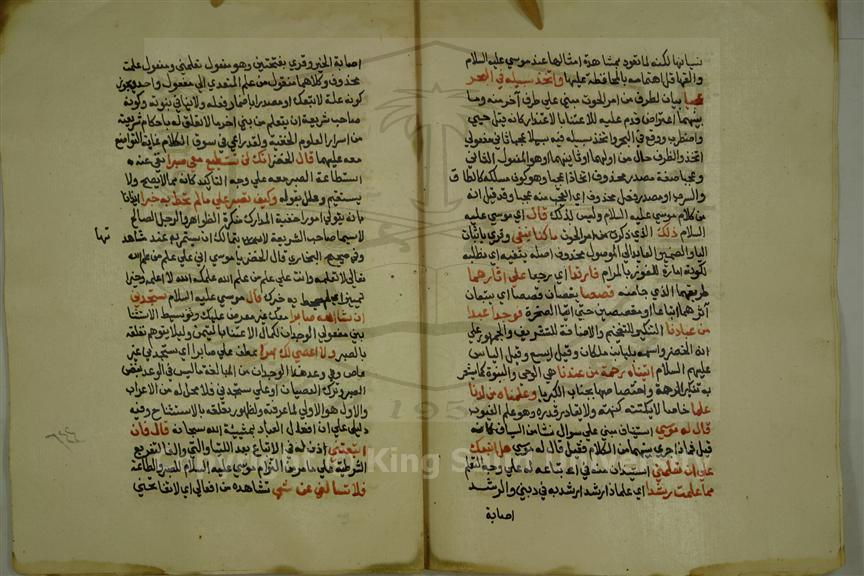 نسيانها لكنه لما تعود بمشاهدة امثالها عند موسي عليه السلام
والفها قل اهتمامه بالمحافظة عليها واتخذ سبيله في البحر
عجبا بيان لطرف من امر الحوت مبني علي طرف آخر منه وما
بينهما اعتراض قدم عليه للاعتنا بالاعتذار كانه قيل حيي
واضطرب ووقع في البحر واتخذ سبيله فيه سبيلا عجبا ثاني مفعولي
اتخذ والظرف حال من اولهما او ثانيهما او هو المفعول الثاني
وعجبا صفة مصدر محذوف اي اتخاذا عجبا وهو كون مسلكه كالطاق
والسرب او مصدر فعل محذوف اي اتعجب منه عجبا وقد قيل انه
من كلام موسي عليه السلام وليس لذلك قال اي موسي عليه
السلام ذلك الذي ذكرت من امر الحوت ما كنا نبغي وقري باثبات
اليا والضمير العايد الي الموصول محذوف اصله نبغيه اي نطلبه
لكونه امارة للفوز بالمرام فارتدا اي رجعا علي اثارهما
طريقهما الذي جا منه قصصا يقصان قصصا اي يتبعان
آثارهما اتباعا او مقتصين حتي اتيا الصخرة فوجدا عبدا
من عبادنا التنكير للتفخيم والاضافة للتشريف والجمهور علي
انه الخضر واسمه بليا بن ملكان وقيل اليسع وقيل الياس
عليهم السلام اتيناه رحمة من عندنا هي الوحي والنبوة كما يشعر
به تنكير الرحمة واختصاصها بجناب الكبريا وعلمناه من لدنا
علما خاصا لا يكتنه كنهه ولا يقادر قدره وهو علم الغيوب
قال له موسي استيناف مبني علي سوال نشا من السياق كانه
قيل فماذا جري بينهما من الكلام فقيل قال له موسي هل اتبعك
علي ان تعلمني استيذانا منه في اتباعه له علي وجه التعلم
مما علمت رشدا اي علما ذا رشد ارشد به في ديني والرشد
اصابة
اصابة الخير وقري بفتحتين وهو مفعول تعلمني ومفعول علمت
محذوف وكلاهما منقول من علم المتعدي الي مفعول واحد ويجوز
كونه علة لاتبعك او مصدرا باضمار فعله ولا ينافي نبوته وكونه
صاحب شريعة ان يتعلم من نبي اخر ما لا تعلق له باحكام شريعته
من اسرار العلوم الخفية ولقد راعي في سوق الكلام غاية التواضع
معه عليهما قال الخضر انك لن تستطيع معي صبرا نفي عنه
استطاعة الصبر معه علي وجه التاكيد كانه مما لا يصح ولا
يستقيم وعلل بقوله وكيف تصبر علي ما لم تحط به خبرا ايذانا
بانه يتولي امورا خفية المدارك منكرة الظواهر والرجل الصالح
لا سيما صاحب الشريعة لا يتمالك ان يشمئز عند شاهدتها
وفي صحيح البخاري قال الخضر يا موسي اني علي علم من علم الله
تعالي لا تعلمه وانت علي علم من علم الله علمكه الله لا اعلمه وخبرا
تمييز اي لم يحط به خبرك قال موسي عليه السلام ستجدني
ان شا الله صابرا معك غير معترض عليك وتوسيط الاستثنا
بين مفعولي الوجدان لكمال الاعتنا بالتيمن وليلا يتوهم تعلقه
بالصبر ولا اعصي لك امرا عطف علي صابرا اي ستجدني غير
عاص وفي وعد هذا الوجدان من المبالغة ما ليس في الوعد بنفس
الصبر وترك العصيان او علي ستجدني فلا محل له من الاعراب
والاول هو الاولي لما عرفته ولظهور تعلقه بالاستثناح وفيه
دليل علي ان افعال العباد بمشيئة الله سبحانه قال فان
اتبعتني اذن له في الاتباع بعد اللتيا والتي والفا لتفريع
الشرطية علي ما مر من التزام موسي عليه السلام للصبر والطاعة
فلا تسالني عن شي تشاهده من افعالي اي لا تفاتحني